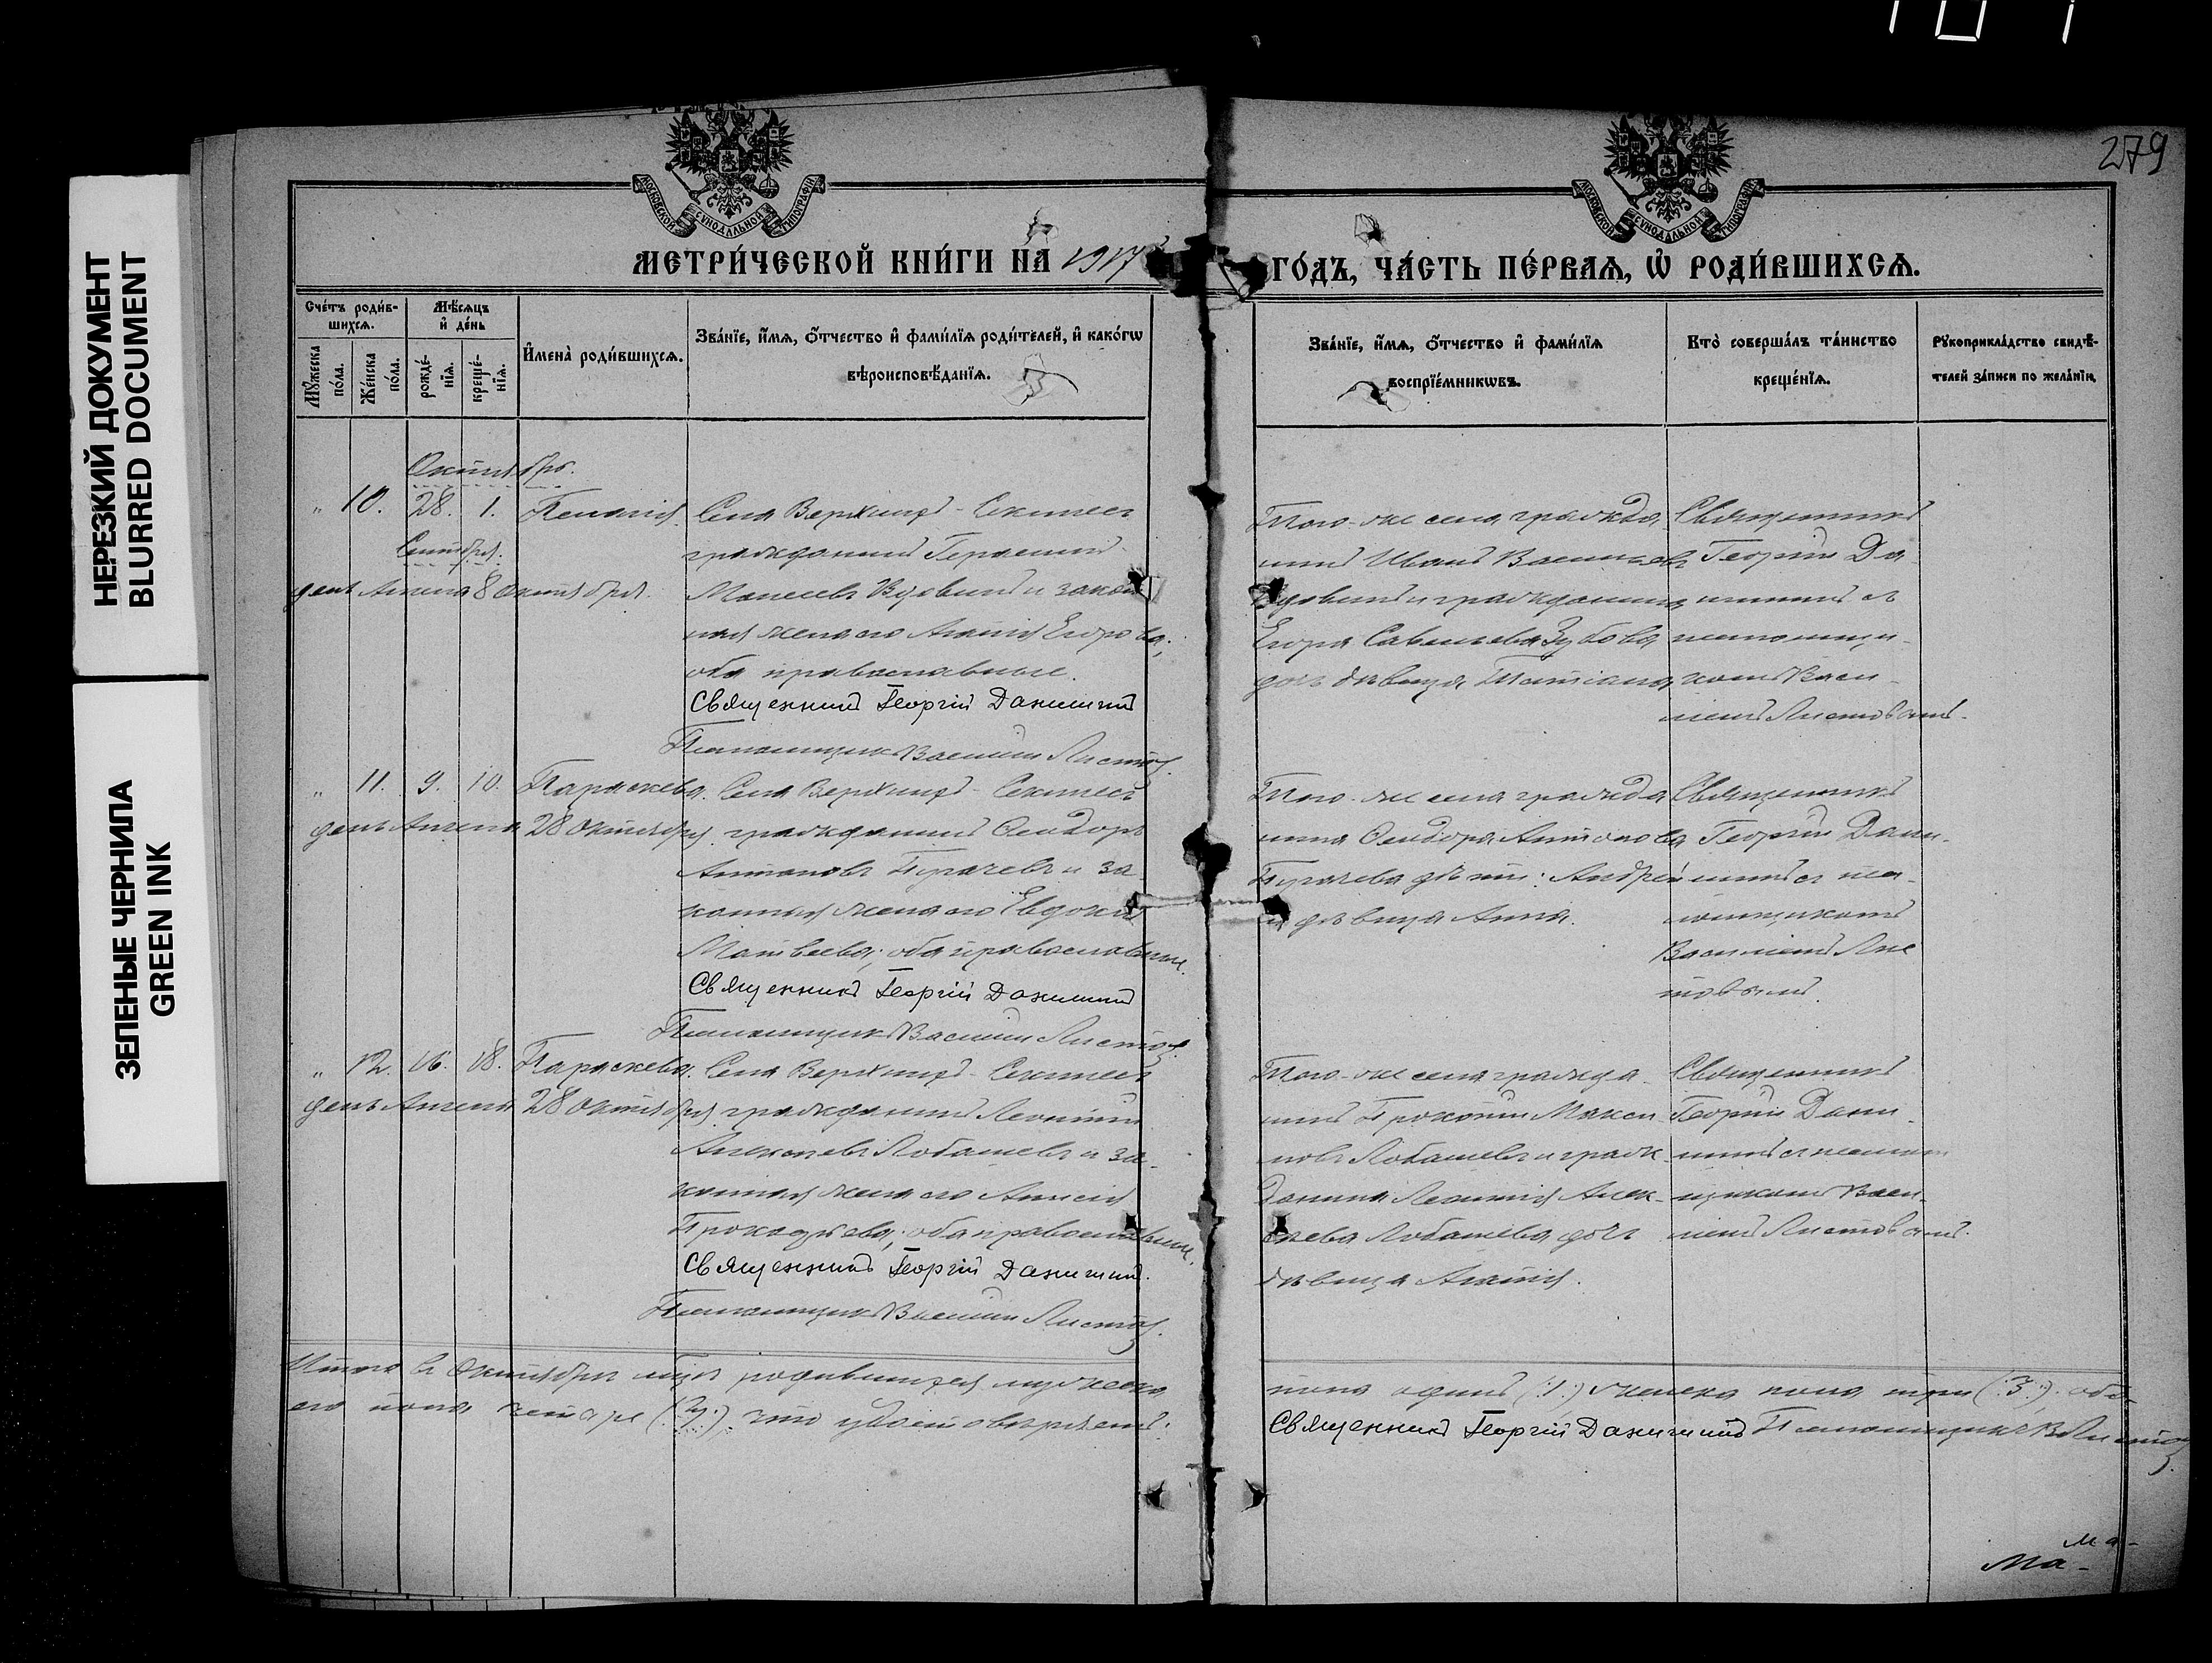 НЕРЕЗКИЙ ДОКУМЕНТ
BLURRED DOCUMENT
ЗЕЛЕНЫЕ ЧЕРНИЛА
GREEN INK
279
МОСКОВСКОЙ СѴНОДАЛЬНОЙ ТИПОГРАФІИ
МОСКОВСКОЙ СѴНОДАЛЬНОЙ ТИПОГРАФІИ
МЕТРИ́ЧЕСКОЙ КНИ́ГИ НА 1917
ГО́ДЪ, ЧА́СТЬ ПЕ́РВАѦ, Ѡ҆ РОДИ́ВШИХСѦ.
Сче́тъ роди́в-
шихсѧ.
Мѣ́сѧцъ
и҆ де́нь
Мꙋ́жеска
по́ла.
Же́нска
по́ла.
рожде́-
нїѧ.
креще́-
нїѧ.
И҆мена̀ роди́вшихсѧ.
Зва́нїе, и҆́мѧ, ѻ҆́тчество и҆ фами́лїѧ роди́телей, и҆ како́гѡ
вѣроисповѣ́данїѧ.
Зва́нїе, и҆́мѧ, ѻ҆́тчество и҆ фами́лїѧ
воспрїе́мникѡвъ.
Кто̀ соверша́лъ та́инство
креще́нїѧ.
Рꙋкоприкла́дство свидѣ́-
телей за́писи по жела́нїю.
Октябрь.
" 10. 28. 1. Пелагія. Села Верхнихъ-
Сентября.
гражданинъ Герасимъ
день Ангела 8 октября.
Моисеевъ Вдовинъ и закон
ная жена его Агапія Егорова,
оба православные.
Священникъ Георгій Данилинъ
Псаломщикъ Василій Листов
Того-же села гражда
нинъ Иванъ Васильевъ
Вдовинъ и гражданина
Егора Савельева Зубова
дочь дѣвица Татіана
Священникъ
Георгій Да
нилинъ съ
псаломщи-
комъ Васи-
ліемъ Листовымъ.
" 11. 9. 10. Параскева. Села Верхнихъ-
день Ангела 28 Октября гражданинъ Ѳеодоръ
Антоновъ Пугачевъ и за
конная жена его Евдокія
Матвѣева, оба православные.
Священникъ Георгій Данилинъ
Псаломщикъ Василій Листов
Того-же села гражда
нина Ѳеодора Антонова
Пугачева дѣти: Андрей
и дѣвица Анна.
Священникъ
Георгій Дани-
линъ съ пса-
ломщикомъ
Василіемъ Лис
товымъ.
" 12. 16. 18. Параскева. Села Верхнихъ-
день Ангела 28 Октября гражданинъ Леонтій
Алексѣевъ Лобашевъ и за-
конная жена его Анисія
оба православные.
Священникъ Георгій Данилинъ.
Псаломщикъ Василій Листов
Того-же села гражда-
нинъ Прокопій Макси
мовъ Лобашевъ и граж-
данина Леонтія Алек-
сѣева Лобашева дочь
дѣвица Агапія.
Священникъ
Георгій Дани-
линъ съ псалом
щикомъ Васи-
ліемъ Листовымъ.
Итого въ Октябрѣ мѣсяцѣ родившихся мужеска
пола одинъ (:1:) женска пола три (:3:), обо
его пола четыре (:4:), что удостовѣряемъ:
Священникъ Георгій Данилинъ Псаломщикъ В. Листов
Ма-
Ма-